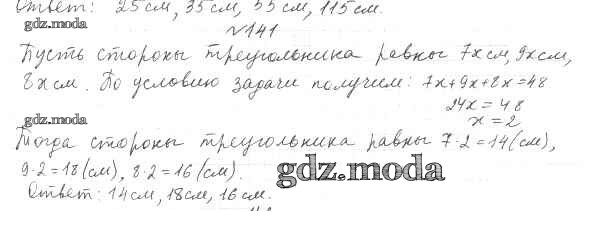 Ответ: 25 см, 35 см, 55 см, 115 см.
gdz.moda
№141
Пусть стороны треугольника равны 7x см, 9x см,
8x см. По условию задачи получим: 7x+9x+8x=48
24x=48
gdz.moda
x=2
Тогда стороны треугольника равны 7·2=14(см),
9·2=18(см), 8·2=16(см).
gdz.moda
Ответ: 14см, 18см, 16 см.